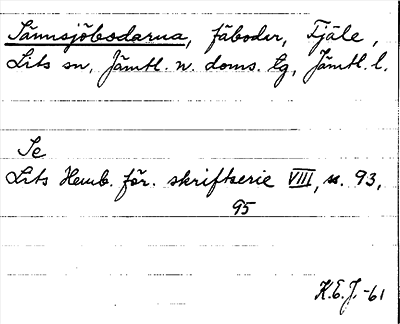 Sännsjöbodarna, fäboder, Fjäle,
Lits sn, Jämtl. n. doms. lg, Jämtl. l.
Se
Lits Hemb. för. skriftserie VIII, ss. 93,
95
K.E.J. -61